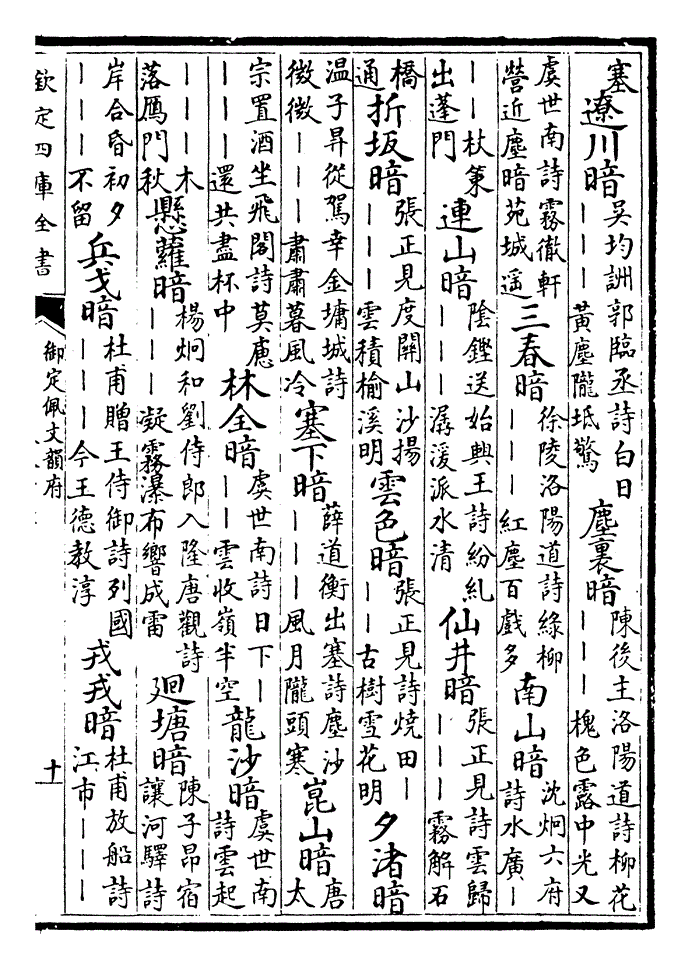 塞遼川暗吳均詶郭臨丞詩白日｜｜｜黃塵隴坻驚塵裏暗陳後主洛陽道詩柳花｜｜｜槐色露中光又
虞世南詩霧徹軒營近塵暗苑城遥三春暗徐陵洛陽道詩綠柳｜｜｜紅塵百戲多南山暗沈炯六府詩水廣｜
｜｜杖策出蓬門連山暗陰鏗送始興王詩紛糺｜｜｜潺湲派水清仙井暗張正見詩雲歸｜｜｜霧解石
橋通折坂暗張正見度關山沙揚｜｜｜雲積榆溪明雲色暗張正見詩燒田｜｜｜古樹雪花明夕渚暗
温子昇從駕幸金墉城詩微微｜｜｜肅肅暮風冷塞下暗薛道衡出塞詩塵沙｜｜｜風月隴頭寒崑山暗唐太
宗置酒坐飛閣詩莫慮｜｜｜還共盡杯中林全暗虞世南詩日下｜｜｜雲收嶺半空龍沙暗虞世南詩雲起
｜｜｜木落鴈門秋懸蘿暗楊炯和劉侍郎入隆唐觀詩｜｜｜凝霧瀑布響成雷廻塘暗陳子昂宿讓河驛詩
岸合昏初夕｜｜｜不留兵戈暗杜甫贈王侍御詩列國｜｜｜今王德教淳戎戎暗杜甫放船詩江市｜｜｜
欽定四庫全書
御定佩文韻府
十